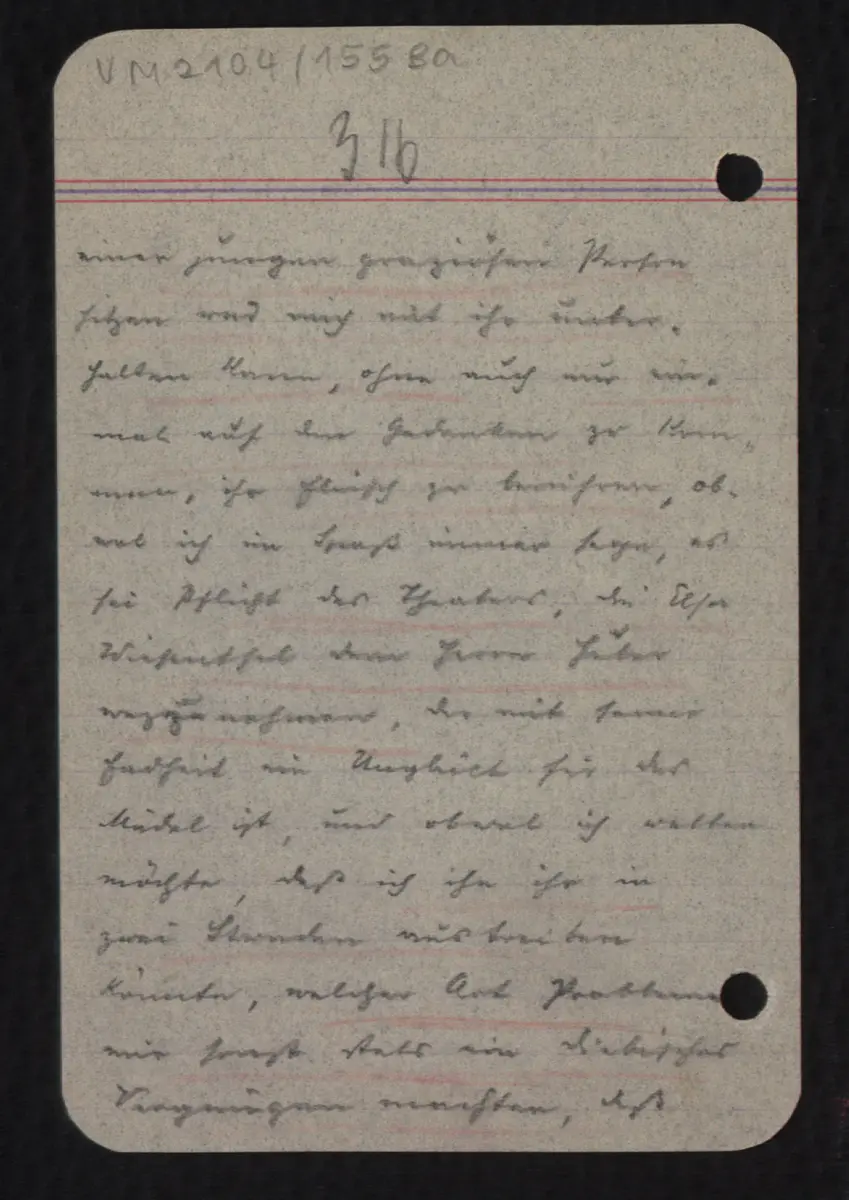 VM2104/1558a
316
einer jungen graziösen Person
sitzen und mich mit ihr unter-
halten kann, ohne auch nur ein-
mal auf den Gedanken zu kom-
men, ihr Fleisch zu berühren, ob-
wol ich im Spaß immer sage, es
sei Pflicht des Theaters, die Elsa
Wiesenthal dem Herrn Huber
wegzunehmen, der mit seiner
Fadheit ein Unglück für das
Mädel ist, und obwol ich wetten
möchte, daß ich ihn ihr in
zwei Stunden austreiben
könnte, welcher Art Probleme
mir sonst stets ein diebisches
Vergnügen machten, daß